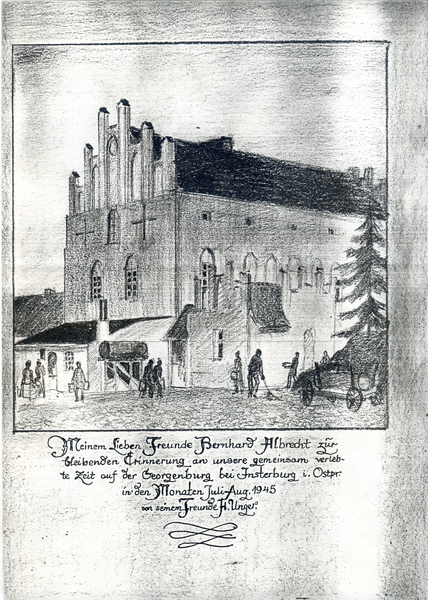 Meinem lieben Freunde Bernhard Albrecht zür
bleibenden Erinnerung an unsere gemeinsam verleb-
te Zeit auf der Georgenburg bei Insterburg i. Ostpr.
in den Monaten Juli-Aug. 1945
von seinem Freunde A. Unger.